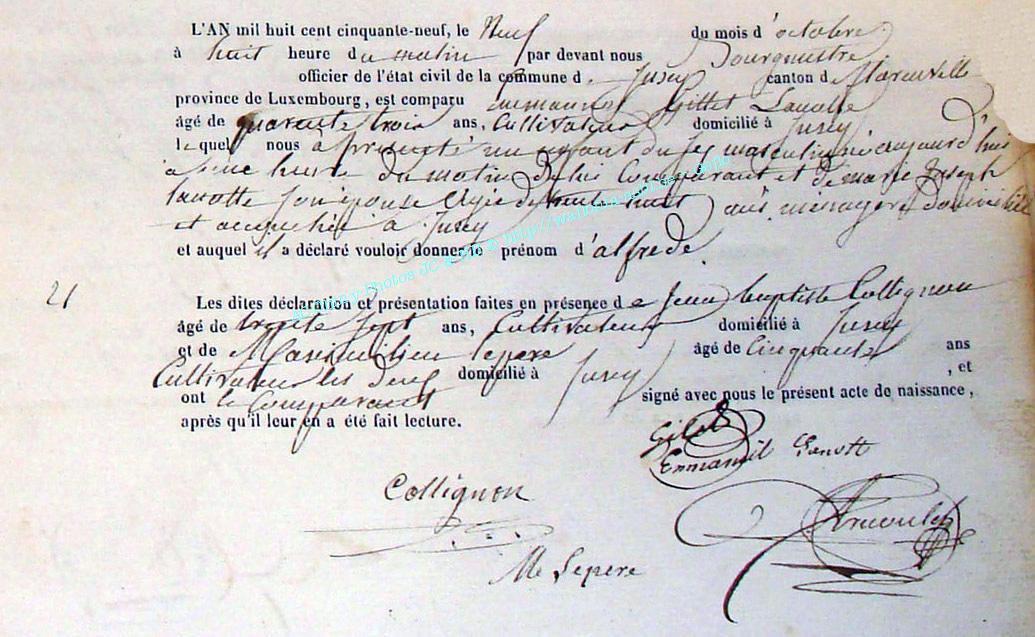 L'AN mil huit cent cinquante-neuf, le Neuf du mois d'octobre
à huit heure du matin par devant nous Bourgmestre
officier de l'état civil de la commune de Jusey canton d
province de Luxembourg, est comparu Gillet Lanotte
âgé de quarante trois ans, Cultivateur domicilié à Jusey
lequel nous a présenté un enfant du sexe masculin né aujourd'hui
à heure du matin de lui Comparant et de marie Joseph
Lanotte son épouse Agée de trente huit ans, ménagère domiciliée
et accouchée à Jusey
et auquel il a déclaré vouloir donner le prénom d'alfrede.
21
Les dites déclaration et présentation faites en présence de Jean Baptiste Collignon
âgé de trente sept ans, Cultivateur domicilié à Jusey
et de Maximilien Lepere âgé de Cinquante ans
Cultivateur les deux domicilié à Jusey , et
ont le Comparant signé avec nous le présent acte de naissance,
après qu'il leur en a été fait lecture.
Gilet
Emmanuel Lanott
Collignon
Me Lepere